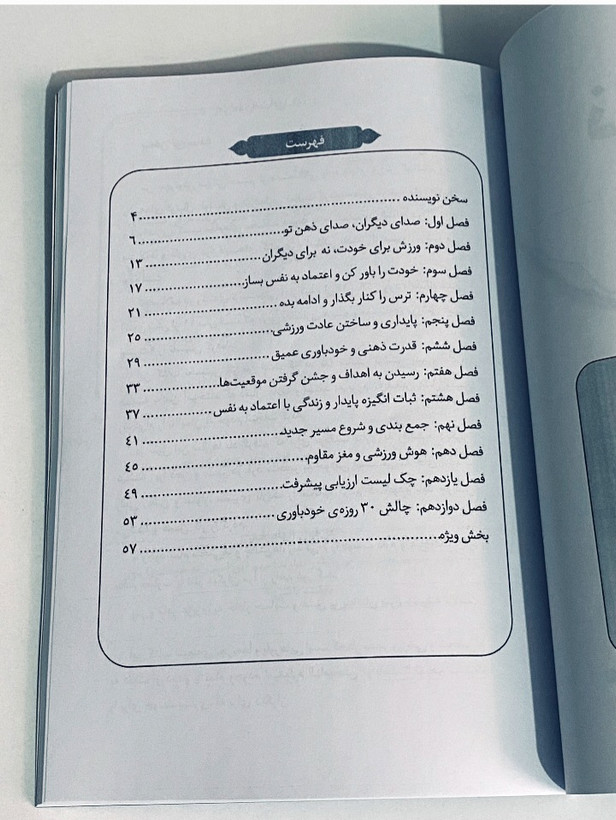 فهرست
سخن نویسنده ........................................ ۴
فصل اول: صدای دیگران، صدای ذهن تو........................ ۶
فصل دوم: ورزش برای خودت، نه برای دیگران.................... ۱۳
فصل سوم: خودت را باور کن و اعتماد به نفس بساز................. ۱۷
فصل چهارم: ترس را کنار بگذار و ادامه بده .................... ۲۱
فصل پنجم: پایداری و ساختن عادت ورزشی..................... ۲۵
فصل ششم: قدرت ذهنی و خودباوری عمیق .................... ۲۹
فصل هفتم: رسیدن به اهداف و جشن گرفتن موفقیت‌ها............. ۳۳
فصل هشتم: ثبات انگیزه پایدار و زندگی با اعتماد به نفس........... ۳۷
فصل نهم: جمع بندی و شروع مسیر جدید..................... ۴۱
فصل دهم: هوش ورزشی و مغز مقاوم........................ ۴۵
فصل یازدهم: چک لیست ارزیابی پیشرفت..................... ۴۹
فصل دوازدهم: چالش ۳۰ روزه‌ی خودباوری.................... ۵۳
بخش ویژه........................................ ۵۷